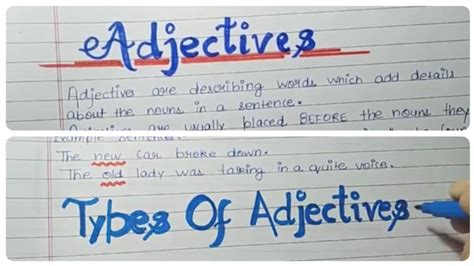 Adjectives
Adjectives are describing words which add details
about the nouns in a sentence.
Adjectives are usually placed BEFORE the nouns they
Example Sentences:
The new car broke down.
The old lady was talking in a quite voice.
Types Of Adjectives